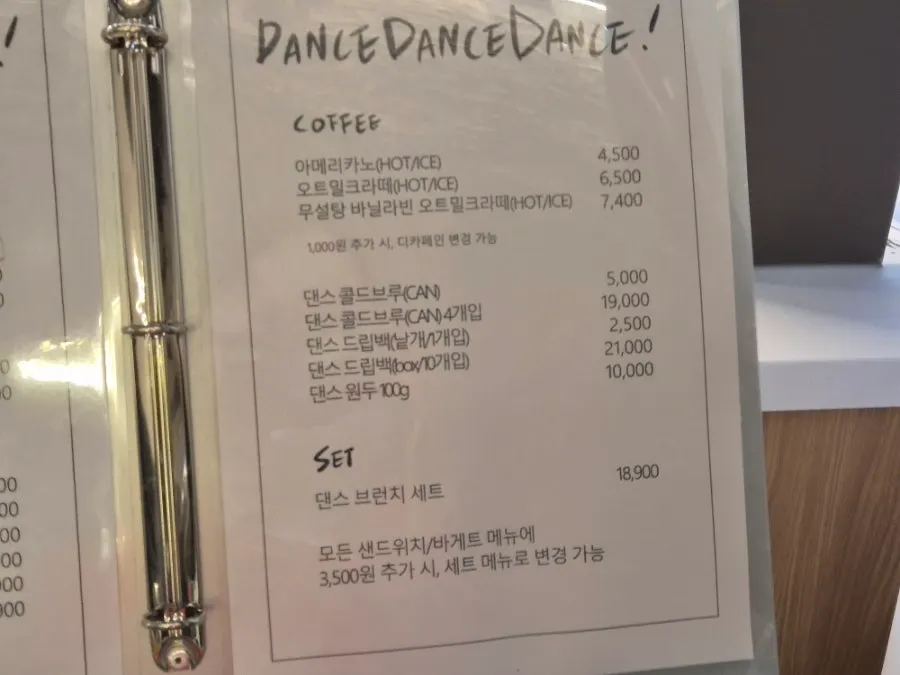 DANCEDANCEDANCE!
COFFEE
아메리카노(HOT/ICE) 4,500
오트밀크라떼(HOT/ICE) 6,500
무설탕 바닐라빈 오트밀크라떼(HOT/ICE) 7,400
1,000원 추가 시, 디카페인 변경 가능
댄스 콜드브루(CAN) 5,000
댄스 콜드브루(CAN) 4개입 19,000
댄스 드립백(낱개/1개입) 2,500
댄스 드립백(box/10개입) 21,000
댄스 원두 100g 10,000
SET
댄스 브런치 세트 18,900
모든 샌드위치/바게트 메뉴에
3,500원 추가 시, 세트 메뉴로 변경 가능